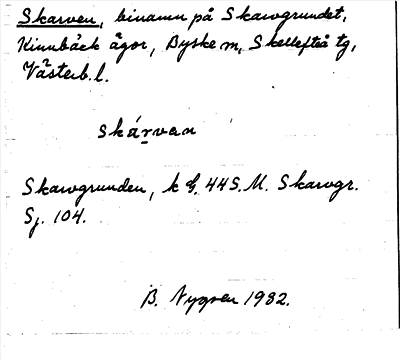 Skarven, binamn på Skarvgrundet,
Kinnbäck ägor, Byske sn, Skellefteå tg,
Västerb. l.
Skárvan
Skarvgrunden, k G. 44 S.M. Skarvgr.
Sj. 104.
B. Nygren 1982.